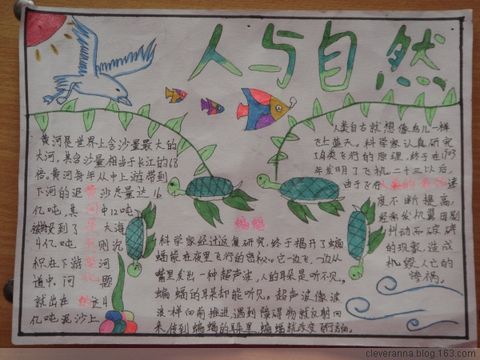 人与自然
黄河是世界上含沙量最大的
大河，其含沙量相当于长江的68
倍，黄河每年从中上游带到
下河的泥沙总量达16
亿吨，其中12吨
被搬到了大海
4亿吨则沉
积在下游黄河
道中，问题
就出在这4
亿吨泥沙上
蝙蝠
科学家经过反复研究，终于揭开了蝙
蝠能在夜里飞行的秘密。它一边飞，一边从
嘴里发出一种超声波，人的耳朵是听不见，
蝙蝠的耳朵却能听见。超声波像波
浪一样向前推进，遇到障碍物就反射回
来，传到蝙蝠的耳朵里，蝙蝠就改变飞行方向。
人类自古就想像鸟儿一样
飞上蓝天。科学家认真研究
鸟类飞行的原理，终于在1903
年发明了飞机。二十三以后，
由于飞
速
度不断提高，
经常发机翼因剧
抖动而破碎
的现象，造成
机毁人亡的
惨祸。
cleveranna.blog.163.com